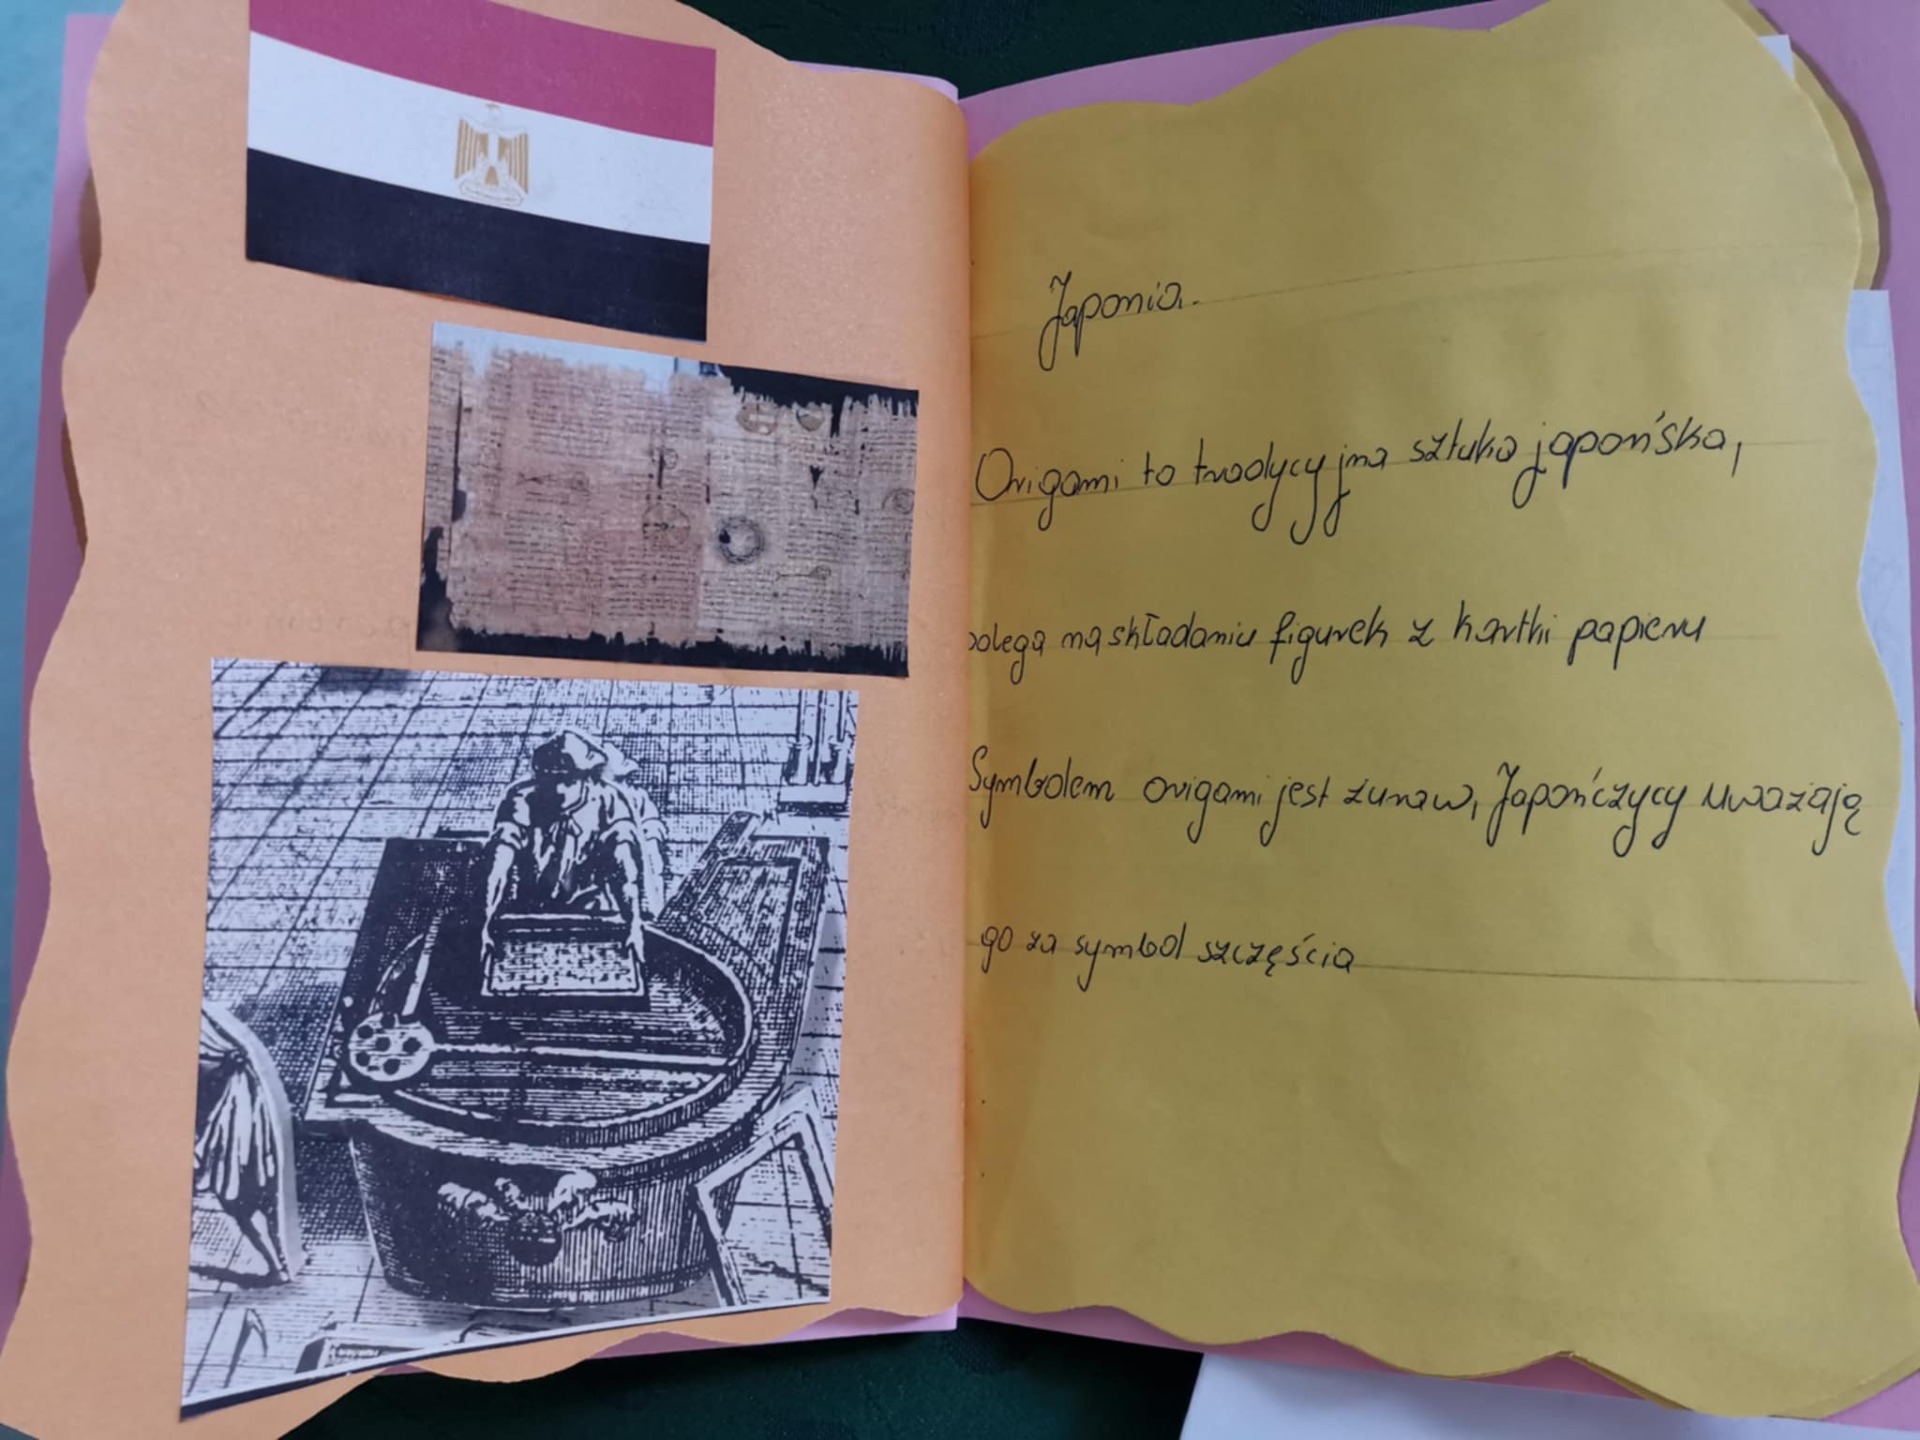 Japonia.
Origami to tradycyjna sztuka japońska,
polega na składaniu figurek z kartki papieru
Symbolem origami jest żuraw, Japończycy uważają
go za symbol szczęścia